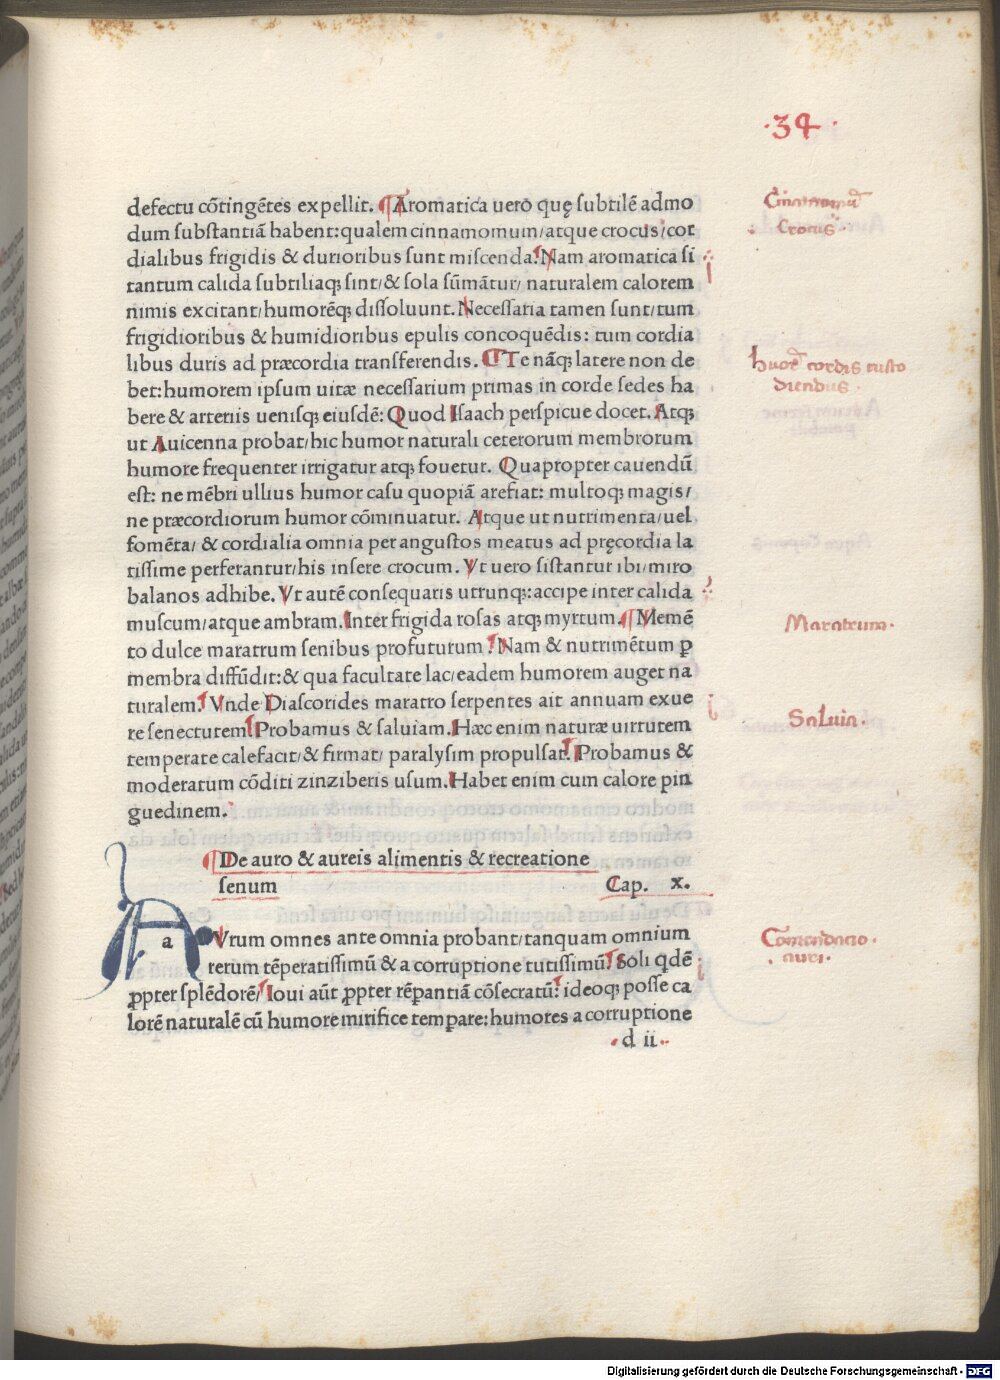 ·34·
defectu cõtingẽtes expellit. ¶Aromatica uero quę subtilẽ admo
dum substantiã habent: qualem cinnamomum/atque crocus/cor
dialibus frigidis & durioribus sunt miscenda. Nam aromatica si
tantum calida subtiliaqȝ sint/& sola sũmãtur/ naturalem calorem
nimis excitant/humorẽqȝ dissoluunt. Necessaria tamen sunt/tum
frigidioribus & humidioribus epulis concoquẽdis: tum cordia
libus duris ad præcordia transferendis. ¶Te nãqȝ latere non de
bet: humorem ipsum uitæ necessarium primas in corde sedes ha
bere & arteriis uenisqȝ eiusdẽ: Quod Isaach perspicue docet. Atqȝ
ut Auicenna probat/hic humor naturali ceterorum membrorum
humore frequenter irrigatur atqȝ fouetur. Quapropter cauendũ
est: ne mẽbri ullius humor casu quopiã arefiat: multoqȝ magis/
ne præcordiorum humor cõminuatur. Atque ut nutrimenta/uel
fomẽta/ & cordialia omnia per angustos meatus ad pręcordia la
tissime perferantur/his insere crocum. Vt uero sistantur ibi/miro
balanos adhibe. Vt autẽ consequaris utrunqȝ: accipe inter calida
muscum/atque ambram. Inter frigida rosas atqȝ myrtum. ¶ Memẽ
to dulce maratrum senibus profuturum. Nam & nutrimẽtum ꝑ
membra diffũdit: & qua facultate lac/eadem humorem auget na
turalem. Vnde Diascorides maratro serpentes ait annuam exue
re senectutem. Probamus & saluiam. Hæc enim naturæ uirtutem
temperate calefacit/& firmat/ paralysim propulsat. Probamus &
moderatum cõditi zinziberis usum. Habet enim cum calore pin
guedinem.
¶De auro & aureis alimentis & recreatione
senum Cap. x.
a Vrum omnes ante omnia probant/tanquam omnium
rerum tẽperatissimũ & a corruptione tutissimũ. Soli qdẽ
ꝓpter splẽdorẽ/ Ioui aũt ꝓpter rẽpantiã cõsecratũ: ideoqȝ posse ca
lorẽ naturalẽ cũ humore mirifice temꝑare: humores a corruptione
d ii
Crocus
huoꝛ̃ cordis custo
diendus.
Maratrum.
Saluia.
Comendacio.
auri.
Digitalisierung gefördert durch die Deutsche Forschungsgemeinschaft - DFG